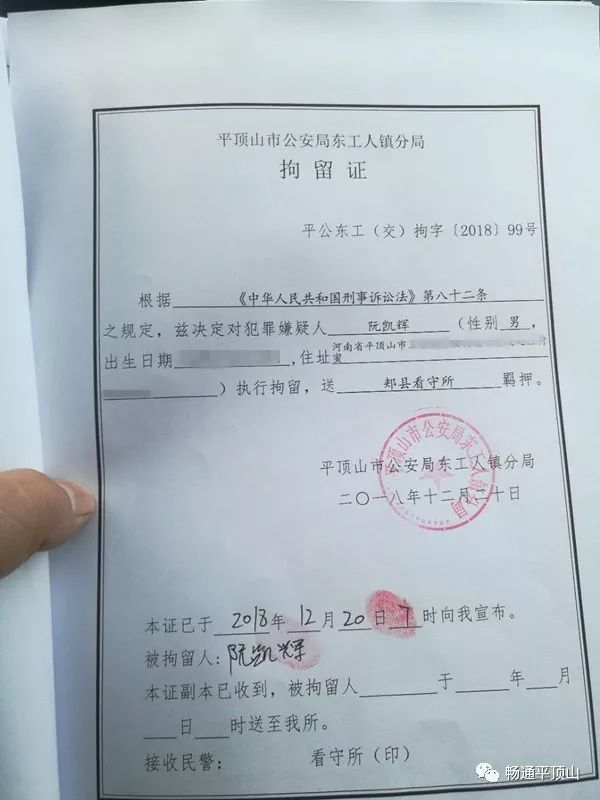 平顶山市公安局东工人镇分局
拘留证
平公东工（交）拘字〔2018〕99号
根据《中华人民共和国刑事诉讼法》第八十二条
之规定，兹决定对犯罪嫌疑人 阮凯辉 （性别 男，
出生日期 ,住址 河南省平顶山市
）执行拘留，送 郏县看守所 羁押。
平顶山市公安局东工人镇分局
平顶山市公安局东工人镇分局
二〇一八年十二月二十日
本证已于 2018年 12月 20日 7时向我宣布。
被拘留人：阮凯辉
本证副本已收到，被拘留人 于 年 月
日 时送至我所。
接收民警： 看守所（印）
畅通平顶山